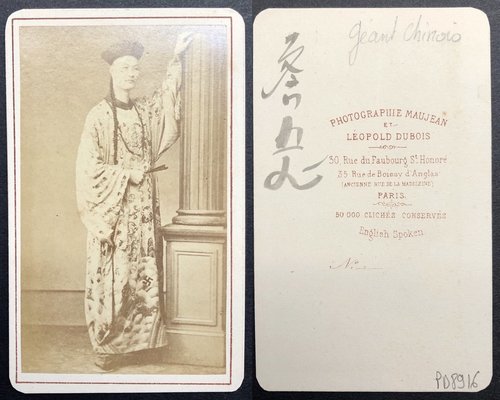 Géant Chinois
詹五九
PHOTOGRAPHIE MAUJEAN
ET
LÉOPOLD DUBOIS
30, Rue du Faubourg St Honoré
35 Rue de Boissy d'Anglas
(ANCIENNE RUE DE LA MADELEINE)
PARIS.
50 000 CLICHÉS CONSERVÉS
English Spoken
No
PD8916